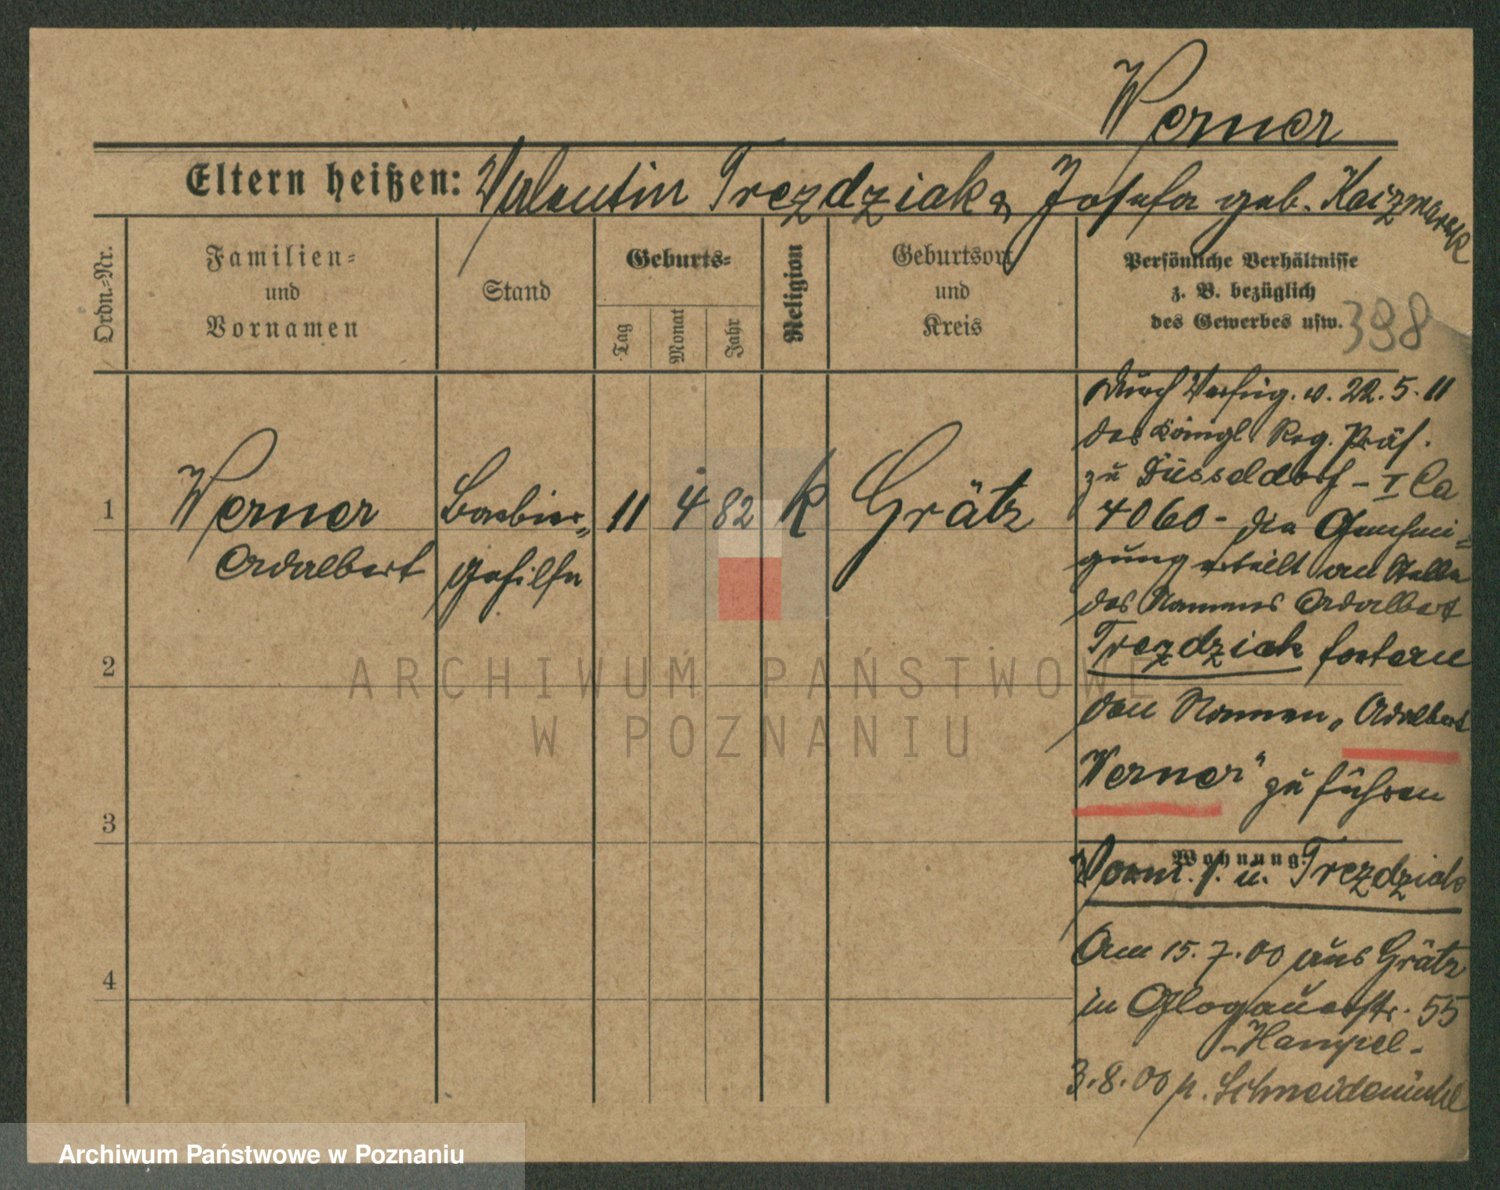 Werner
Eltern heißen: Valentin Trezdziak & Josefa geb. Kaizmarek
Ordn.-Nr.
Familien-
und
Vornamen
Stand
Geburts-
Tag
Monat
Jahr
Religion
Geburtsort
und
Kreis
Persönliche Verhältnisse
z. B. bezüglich
des Gewerbes usw.
398
1
Werner
Adalbert
Barbier-
gehilfe
11 4 82
k
Grätz
Durch Verfüg. v. 22.5.11
des königl. Reg. Präs.
zu Düsseldorf – I Ca
4060 – die Genehmi-
gung erteilt an Stelle
des Namens Adalbert
Trezdziak fortan
den Namen „Adalbert
Werner" zu führen
2
3
4
Wohnung:
Vorm. s. u. Trezdziak
Am 15.7.00 aus Grätz
in Glogauerstr. 55
- Hampel -
3.8.00 n. Schneidemühl
ARCHIWUM PAŃSTWOWE
W POZNANIU
Archiwum Państwowe w Poznaniu